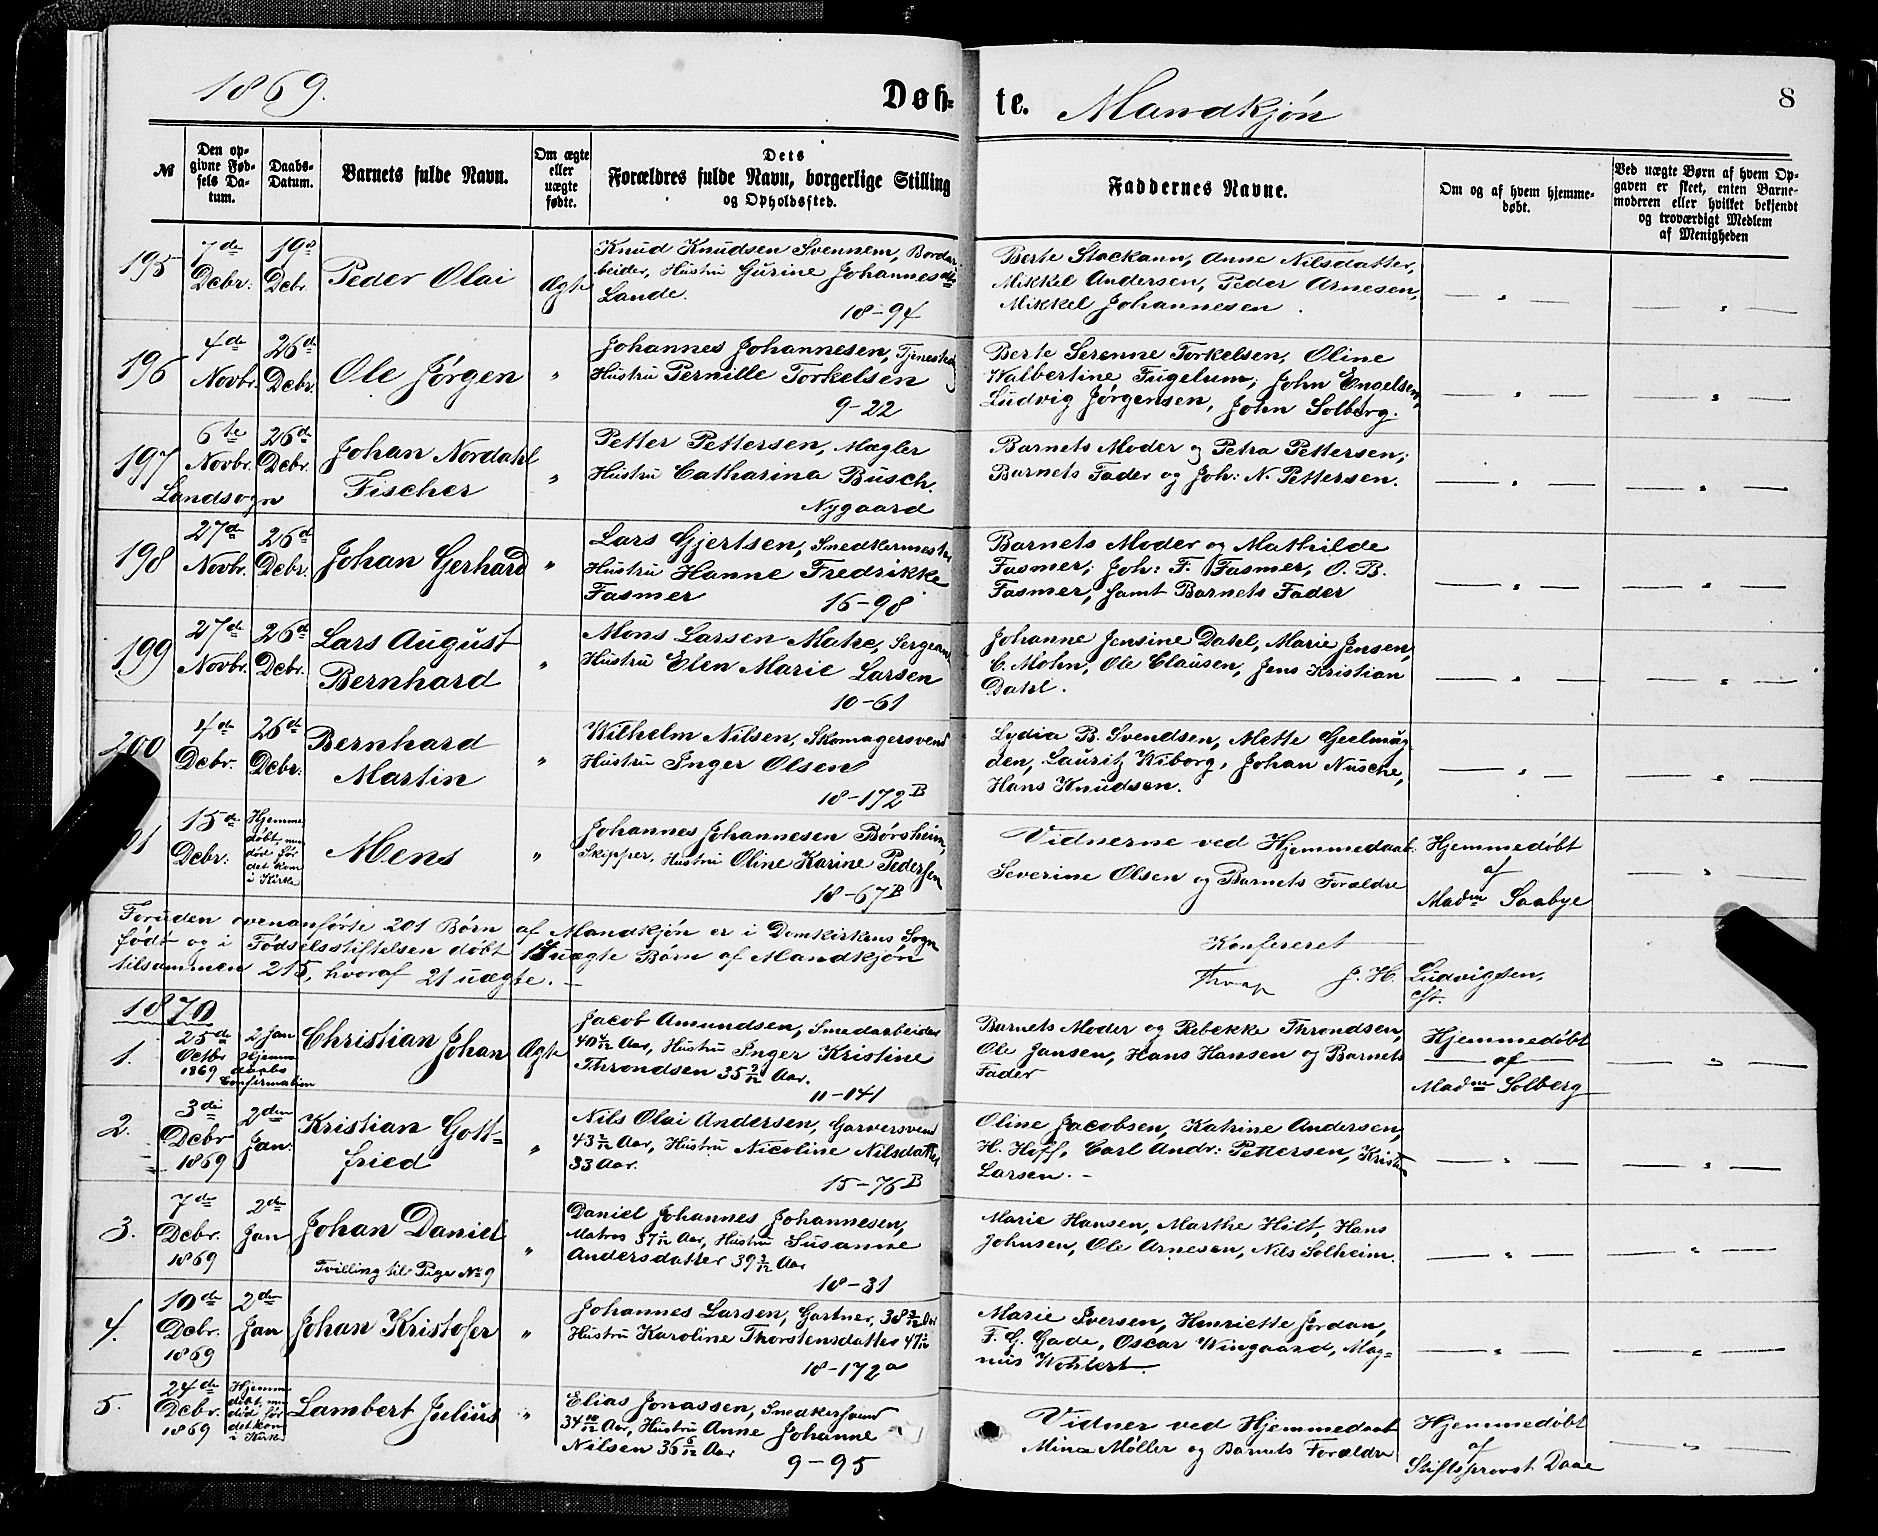 1869.
Døb-
te. Mandkjøn
8
№
Den opgivne Fødsels Datum.
Daabs-Datum.
Barnets fulde Navn.
Om ægte eller uægte fødte.
Dets Forældres fulde Navn, borgerlige Stilling og Opholdssted.
Faddernes Navne.
Om og af hvem hjemmedøbt.
Ved uægte Børn af hvem Opgaven er skeet, enten Barnemoderen eller hvilket bekjendt og troværdigt Medlem af Menigheden
195
7de Debr.
19de Debr.
Peder Olai
Ægte
Knud Knudsen Svennem, Bordarbeider, Hustru Gurine Johannesdtr
Lande.
18-94
Berte Stockann, Anne Nilsdatter,
Mikkel Andersen, Peder Arnesen,
Mikkel Johannesen.
196
4de Novbr.
26de Debr.
Ole Jørgen
"
Johannes Johannesen,
Hustru Pernille Torkelsen
9-22
Berte Serenne Torkelsen, Oline
Walbertine Fugelum, John Engelsen,
Ludvig Jørgensen, John Solberg.
197
Landsogn
6te Novbr.
26de Debr.
Johan Nordahl
Fischer
"
Petter Pettersen, Mægler
Hustru Catharina Busch.
Nygaard
Barnets Moder og Petra Pettersen;
Barnets Fader og Joh: N. Pettersen.
198
27de Novbr.
26de Debr.
Johan Gerhard
"
Lars Gjertsen, Snedkermester
Hustru Hanne Fredrikke
Fasmer
16-98
Barnets Moder og Mathilde
Fasmer, Joh: F. Fasmer, O. B.
Fasmer, samt Barnets Fader
199
27de Novbr.
26de Debr.
Lars August
Bernhard
"
Mons Larsen Matre, Sergeant
Hustru Elen Marie Larsen
10-61
Johanne Jensine Dahl, Marie Jensen,
C. Mohn, Ole Clausen, Jens Kristian
Dahl.
200
4de Debr.
26de Debr.
Bernhard
Martin
"
Wilhelm Nilsen, Skomagersvend
Hustru Inger Olsen
18-172 B
Lydia B. Svendsen, Mette Geelmuy
den, Lauritz Wiborg, Johan Nusche,
Hans Knudsen.
01
15de Debr.
Hjemmedøbt, men død før det kom i Kirke
Mens
"
Johannes Johannesen Børsheim,
Skipper, Hustru Oline Karine Pedersen
18-67 B
Vidnerne ved Hjemmedaab
Severine Olsen og Barnets Forældre
Hjemmedøbt
af
Madm Saabye
Foruden ovenanførte 201 Børn af Mandkjøn er i Domkirkens Sogn
født og i Fødselsstiftelsen døbt uægte Børn af Mandkjøn
tilsammen 215, hvoraf 21 uægte.
Konfereret
J. H. Ludvigsen,
1870
1.
25de Octbr 1869
2 Jan
Hjemmedaabs Confirmation
Christian Johan
Ægte
Jacob Amundsen, Smedarbeider
40 Aar, Hustru Inger Kristine
Throndsen 35 Aar.
11-141
Barnets Moder og Rebekke Throndsen,
Ole Jansen, Hans Hansen og Barnets
Fader
Hjemmedøbt
af
Madme Solberg
2.
3de Debr 1869
2den Jan.
Kristian Gott-
fried
"
Nils Olai Andersen, Garversvend
43 Aar, Hustru Nicoline Nilsdatter
33 Aar.
15-76 B
Oline Jacobsen, Katrine Andersen,
H. Hiff, Carl Andr: Pettersen, Kristen
Larsen.
3.
7de Debr. 1869
2den Jan
Johan Daniel
Tvilling til Pige No 9
"
Daniel Johannes Johannesen,
Matros 37 Aar, Hustru Susanne
Andersdatter 39 Aar
18-31
Marie Hansen, Marthe Hilt, Hans
Johnsen, Ole Arnesen, Nils Solheim.
4.
10de Debr. 1869
2den Jan
Johan Kristofer
"
Johannes Larsen, Gartner, 38 Aar
Hustru Karoline Thorstensdatter 47
18-172a
Marie Iversen, Henriette Jordan,
F. G. Gade, Oscar Wingaard, Mag-
nus Wohlert.
5.
24de Debr. 1869
Hjemmedøbt, men død før det kom i Kirke
Lambert Julius
"
Elias Jonassen, Snedkersvend
34 10/12 Aar, Hustru Anne Johanne
Nilsen 36 6/12 Aar
9-95
Vidner ved Hjemmedaab
Mina Møller og Barnets Forældre
Hjemmedøbt
af
Stiftsprovst Daae